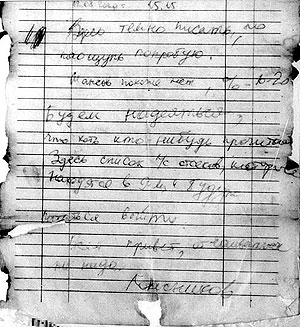 15.15
Здесь темно писать, но
наощупь попробую.
Шансов похоже нет, % 10-20
Будем надеяться,
что хоть кто нибудь прочитает
Здесь список л/с отсеков, которые
находятся в 9-м и
Всем привет, отчаиваться
не надо.
Колесников